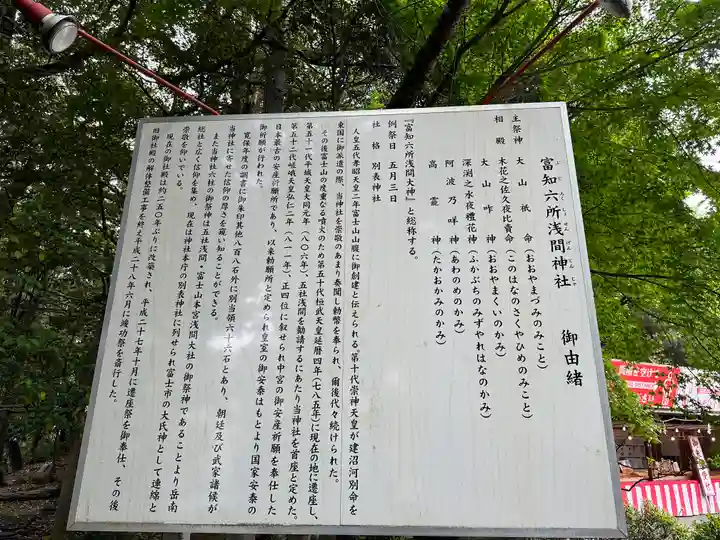 富知六所浅間神社 御由緒
ふじろくしょせんげんじんじゃ
主祭神 大山祇命(おおやまづみのみこと)
相殿 木花之佐久夜比賣命(このはなのさくやひめのみこと)
大山咋神(おおやまくいのかみ)
深渕之水夜禮花神(ふかぶちのみずやれはなのかみ)
阿波乃咩神(あわのめのかみ)
高龗神(たかおかみのかみ)
『富知六所浅間大神』と総称する。
例祭日 五月三日
社格 別表神社
人皇五代孝昭天皇二年富士山山腹に御創建と伝えられる。第十代崇神天皇が建沼河別命を
東国に御派遣の際、当神社を崇敬のあまり奏聞し勅幣を奉られ、爾後代々続けられた。
その後富士山の度重なる噴火のため第五十代桓武天皇延暦四年(七八五年)に現在の地に遷座し、
第五十一代平城天皇大同元年(八〇六年)、五社浅間を勧請するにあたり当神社を首座と定めた。
第五十二代嵯峨天皇弘仁二年(八一一年)、正四位に叙せられ中宮の御安産祈願を奉仕した
日本最古の安産祈願所であり、以来勅願所と定められ皇室の御安泰はもとより国家安泰の
御祈願が行われた。
寛保年度の調書に御朱印其他八百八石外に別当領六十六石とあり、朝廷及び武家諸侯が
当神社に寄せた信仰の厚さを窺い知ることができる。
また当神社六柱の御祭神は五社浅間・富士山本宮浅間大社の御祭神であることより岳南
総社と広く信仰を集め、現在は神社本庁の別表神社に列せられ富士市の大氏神として連綿と
崇敬を仰いている。
現在の御社殿は約二五〇年ぶりに改築され、平成二十七年十月に遷座祭を御奉仕、その後
旧御社殿の解体整備工事を終え平成二十八年六月に竣功祭を斎行した。